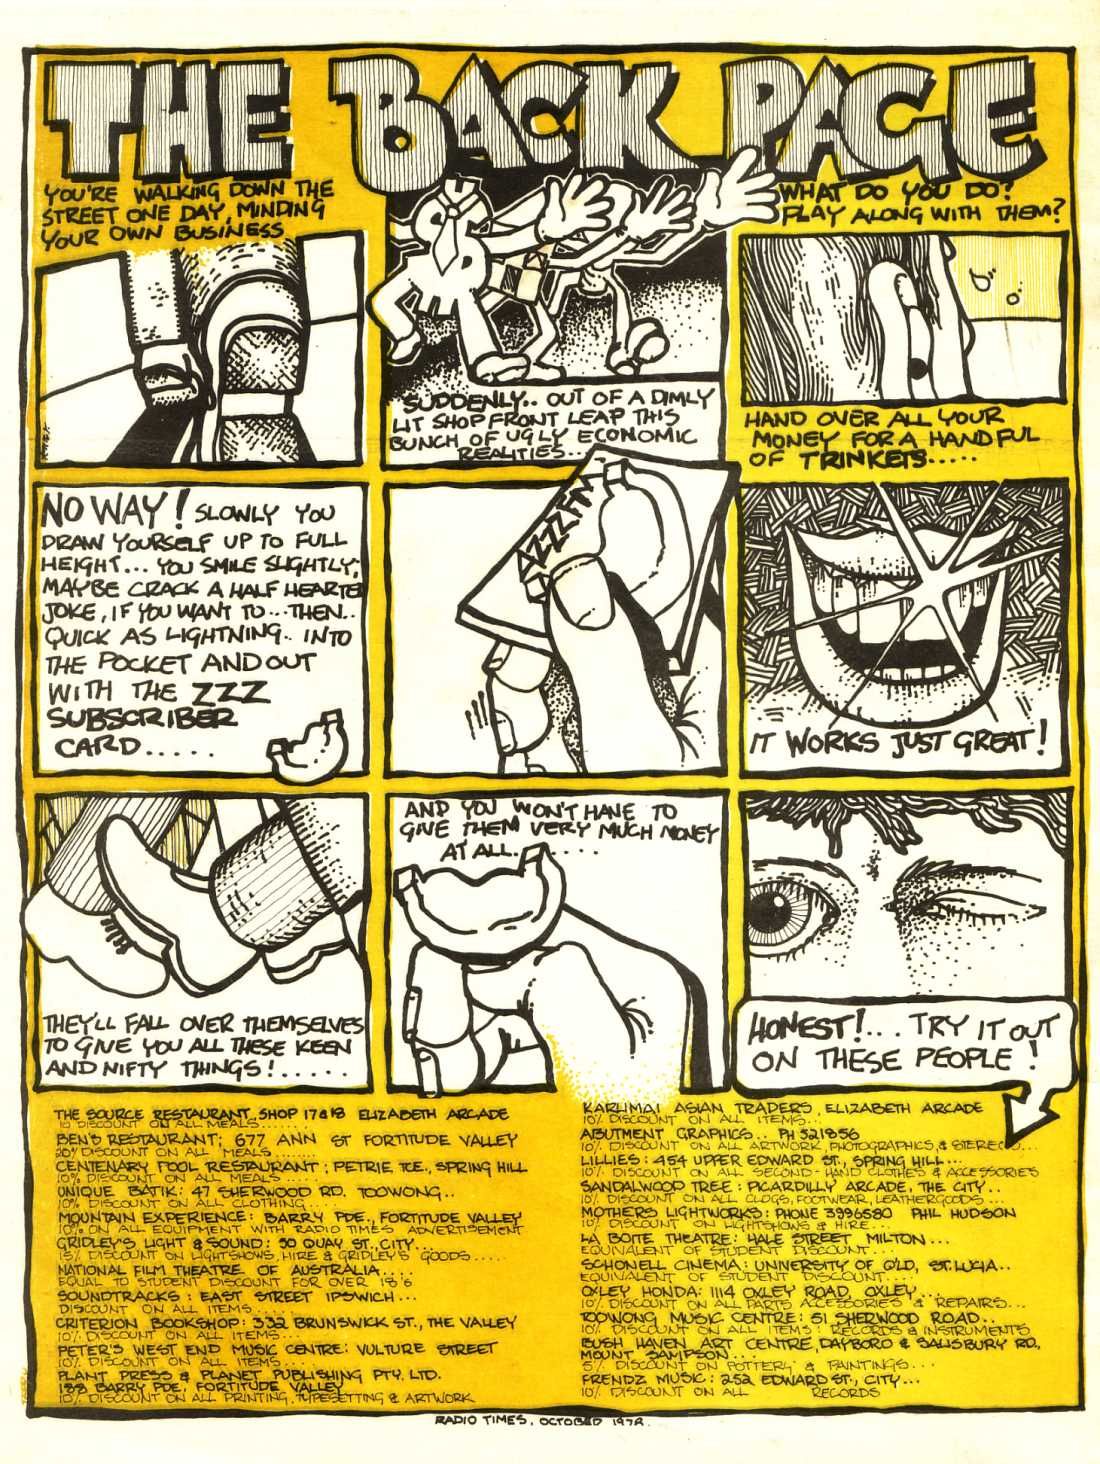 THE BACK PAGE
YOU'RE WALKING DOWN THE
STREET ONE DAY, MINDING
YOUR OWN BUSINESS
SUDDENLY.. OUT OF A DIMLY
LIT SHOP FRONT LEAP THIS
BUNCH OF UGLY ECONOMIC
REALITIES...
WHAT DO YOU DO?
PLAY ALONG WITH THEM?
HAND OVER ALL YOUR
MONEY FOR A HANDFUL
OF TRINKETS.....
NO WAY! SLOWLY YOU
DRAW YOURSELF UP TO FULL
HEIGHT... YOU SMILE SLIGHTLY,
MAYBE CRACK A HALF HEARTED
JOKE, IF YOU WANT TO... THEN..
QUICK AS LIGHTNING.. INTO
THE POCKET AND OUT
WITH THE ZZZ
SUBSCRIBER
CARD.....
4ZZZ FM
IT WORKS JUST GREAT!
THEY'LL FALL OVER THEMSELVES
TO GIVE YOU ALL THESE KEEN
AND NIFTY THINGS!.....
AND YOU WON'T HAVE TO
GIVE THEM VERY MUCH MONEY
AT ALL......
HONEST!... TRY IT OUT
ON THESE PEOPLE!
THE SOURCE RESTAURANT, SHOP 17&18 ELIZABETH ARCADE
10% DISCOUNT ON ALL MEALS......
BEN'S RESTAURANT; 677 ANN ST FORTITUDE VALLEY
20% DISCOUNT ON ALL MEALS.......
CENTENARY POOL RESTAURANT; PETRIE TCE., SPRING HILL
10% DISCOUNT ON ALL MEALS.....
UNIQUE BATIK: 47 SHERWOOD RD, TOOWONG..
10% DISCOUNT ON ALL CLOTHING....
MOUNTAIN EXPERIENCE: BARRY PDE., FORTITUDE VALLEY
10% ON ALL EQUIPMENT WITH RADIO TIMES ADVERTISEMENT
GRIDLEY'S LIGHT & SOUND: 50 QUAY ST., CITY...
5% DISCOUNT ON LIGHTSHOWS, HIRE & GRIDLEY'S GOODS.....
NATIONAL FILM THEATRE OF AUSTRALIA....
EQUAL TO STUDENT DISCOUNT FOR OVER 18'S
SOUNDTRACKS: EAST STREET IPSWICH...
DISCOUNT ON ALL ITEMS.....
CRITERION BOOKSHOP: 332 BRUNSWICK ST., THE VALLEY
10% DISCOUNT ON ALL ITEMS...
PETER'S WEST END MUSIC CENTRE: VULTURE STREET
10% DISCOUNT ON ALL ITEMS....
PLANT PRESS & PLANET PUBLISHING PTY. LTD.
188 BARRY PDE, FORTITUDE VALLEY
10% DISCOUNT ON ALL PRINTING, TYPESETTING & ARTWORK
KARUMAI ASIAN TRADERS, ELIZABETH ARCADE
10% DISCOUNT ON ALL ITEMS...
ABUTMENT GRAPHICS... PH 521856
10% DISCOUNT ON ALL ARTWORK, PHOTOGRAPHICS, & STEREOS...
LILLIES: 454 UPPER EDWARD ST., SPRING HILL...
10% DISCOUNT ON ALL SECOND-HAND CLOTHES & ACCESSORIES
SANDALWOOD TREE: PICARDILLY ARCADE, THE CITY..
10% DISCOUNT ON ALL CLOGS, FOOTWEAR, LEATHERGOODS...
MOTHERS LIGHTWORKS: PHONE 3996580 PHIL HUDSON
10% DISCOUNT ON LIGHTSHOWS & HIRE...
LA BOITE THEATRE: HALE STREET MILTON...
EQUIVALENT OF STUDENT DISCOUNT...
SCHONELL CINEMA: UNIVERSITY OF Q'LD, ST. LUCIA..
EQUIVALENT OF STUDENT DISCOUNT....
OXLEY HONDA: 1114 OXLEY ROAD, OXLEY...
10% DISCOUNT ON ALL PARTS ACCESSORIES & REPAIRS...
TOOWONG MUSIC CENTRE: 51 SHERWOOD ROAD..
10% DISCOUNT ON ALL ITEMS: RECORDS & INSTRUMENTS
BUSH HAVEN ART CENTRE, DAYBORO & SALISBURY RD.,
MOUNT SAMPSON...
5% DISCOUNT ON POTTERY & PAINTINGS...
FRENDZ MUSIC: 252 EDWARD ST., CITY...
10% DISCOUNT ON ALL RECORDS
RADIO TIMES, OCTOBER 1978